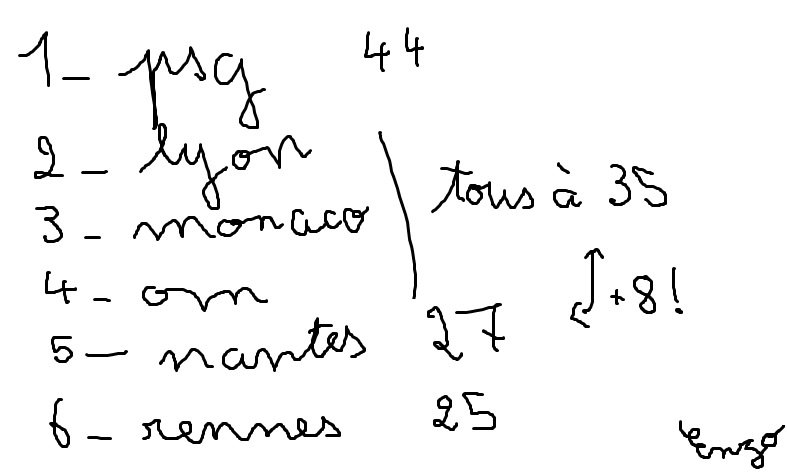 1_ psg 44
2_ lyon
tous à 35
3_ monaco
4_ om
+8!
5_ nantes 27
6_ rennes 25
enzo